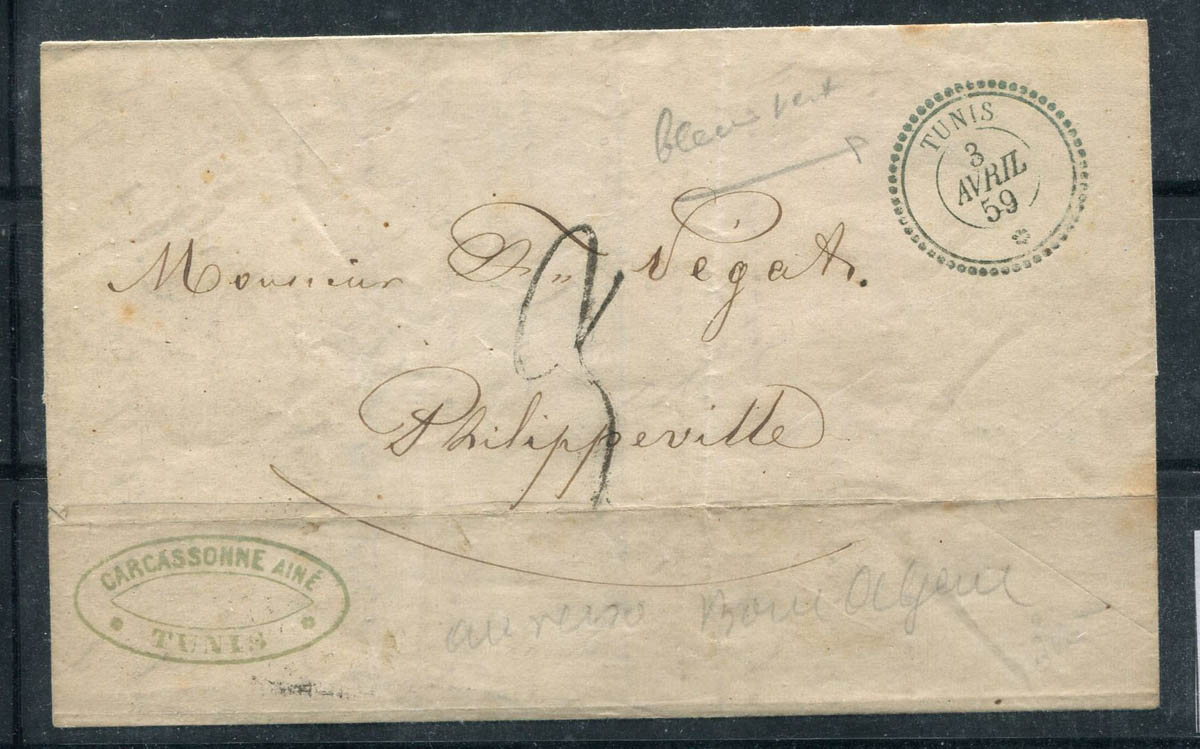 bleu vert
TUNIS
3
AVRIL
59
Monsieur
Philippeville
3
CARCASSONNE AINÉ
TUNIS
au verso Bone Algerie